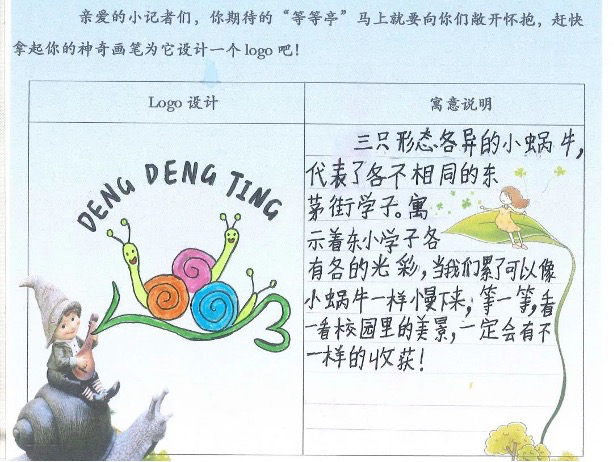 亲爱的小记者们，你期待的“等等亭”马上就要向你们敞开怀抱，赶快
拿起你的神奇画笔为它设计一个logo吧！
Logo 设计
寓意说明
DENG DENG TING
三只形态各异的小蜗牛，
代表了各不相同的东
茅街学子。寓
示着东小学子各
有各的光彩，当我们累了可以像
小蜗牛一样慢下来，等一等，看
一看校园里的美景，一定会有不
一样的收获！